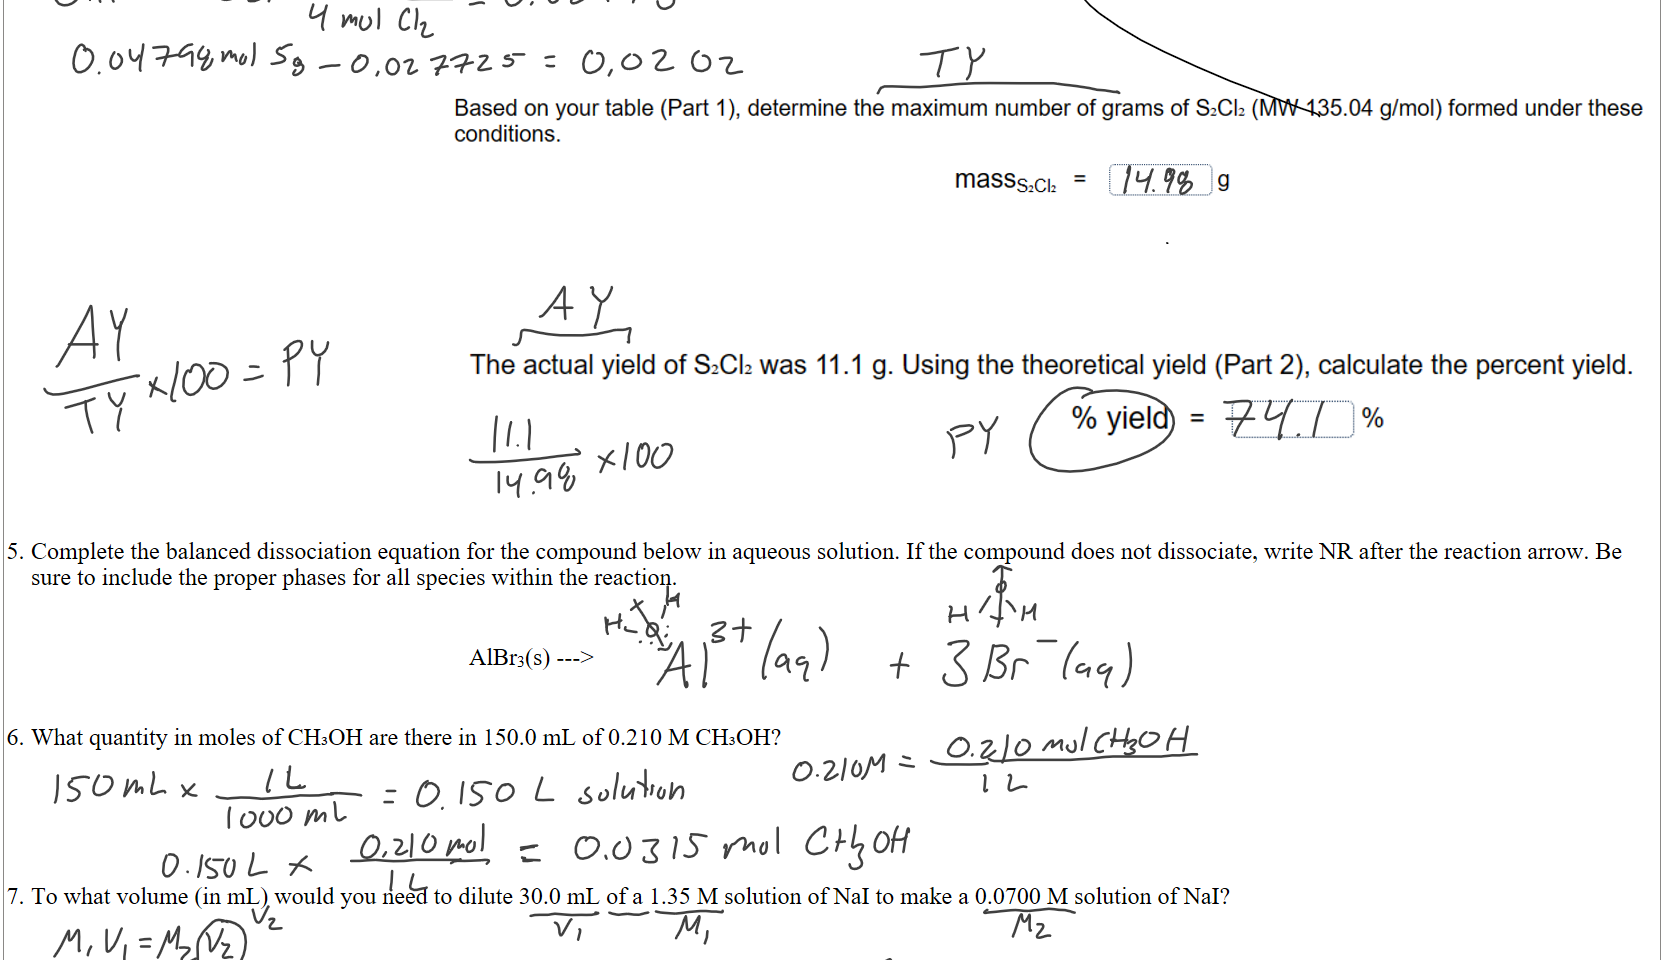 4 mol Cl₂
0.04798 mol S₈ - 0.027725 = 0.0202
TY
Based on your table (Part 1), determine the maximum number of grams of S₂Cl₂ (MW 135.04 g/mol) formed under these
conditions.
mass S₂Cl₂ = 14.98 g
AY
AY/TY ×100 = PY
The actual yield of S₂Cl₂ was 11.1 g. Using the theoretical yield (Part 2), calculate the percent yield.
PY % yield = 74.1 %
11.1/14.98 ×100
5. Complete the balanced dissociation equation for the compound below in aqueous solution. If the compound does not dissociate, write NR after the reaction arrow. Be
sure to include the proper phases for all species within the reaction.
H H H H
AlBr₃(s) ---> Al³⁺(aq) + 3Br⁻(aq)
6. What quantity in moles of CH₃OH are there in 150.0 mL of 0.210 M CH₃OH?
0.210M = 0.210 mol CH₃OH / 1 L
150mL × 1L/1000 mL = 0.150 L solution
0.150L × 0.210 mol/1L = 0.0315 mol CH₃OH
7. To what volume (in mL) would you need to dilute 30.0 mL of a 1.35 M solution of NaI to make a 0.0700 M solution of NaI?
V₂ V₁ M₁ M₂
M₁V₁=M₂V₂